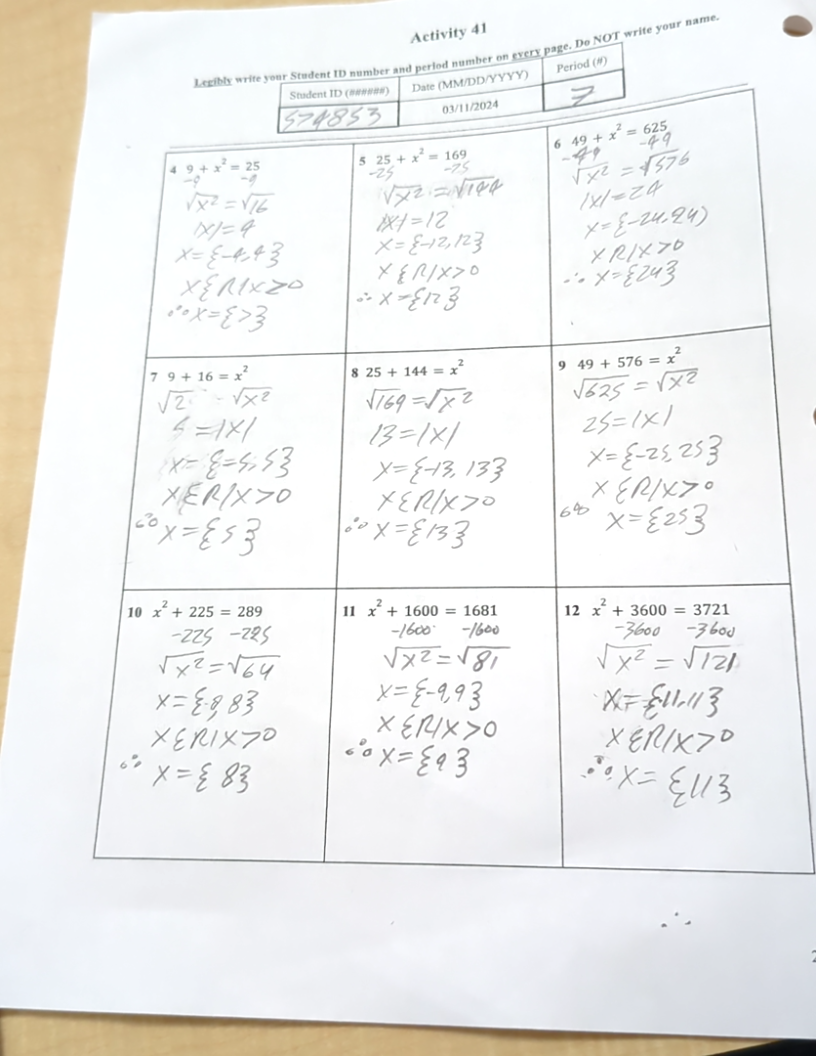 Activity 41
Legibly write your Student ID number and period number on every page. Do NOT write your name.
Student ID (######) Date (MM/DD/YYYY) Period (#)
574853 03/11/2024 7
4 9 + x² = 25
-9 -9
√x² = √16
|x| = 4
x = {-4, 4}
x ξ R | x > 0
∴ x = { > }
5 25 + x² = 169
-25 -25
√x² = √144
|x| = 12
x = {-12, 12}
x ξ R | x > 0
∴ x = {12}
6 49 + x² = 625
-49 -49
√x² = √576
|x| = 24
x = {-24, 24)
x R | x > 0
∴ x = {24}
7 9 + 16 = x²
√2 √x²
5 = |x|
x = {=5, 5}
x ξ R | x > 0
∴ x = {5}
8 25 + 144 = x²
√169 = √x²
13 = |x|
x = {-13, 13}
x ξ R | x > 0
∴ x = {13}
9 49 + 576 = x²
√625 = √x²
25 = |x|
x = {-25, 25}
x ξ R | x > 0
∴ x = {25}
10 x² + 225 = 289
-225 -225
√x² = √64
x = {-8, 8}
x ξ R | x > 0
∴ x = {8}
11 x² + 1600 = 1681
-1600 -1600
√x² = √81
x = {-9, 9}
x ξ R | x > 0
∴ x = {9}
12 x² + 3600 = 3721
-3600 -3600
√x² = √121
x = {11, 11}
x ξ R | x > 0
∴ x = {11}
∴